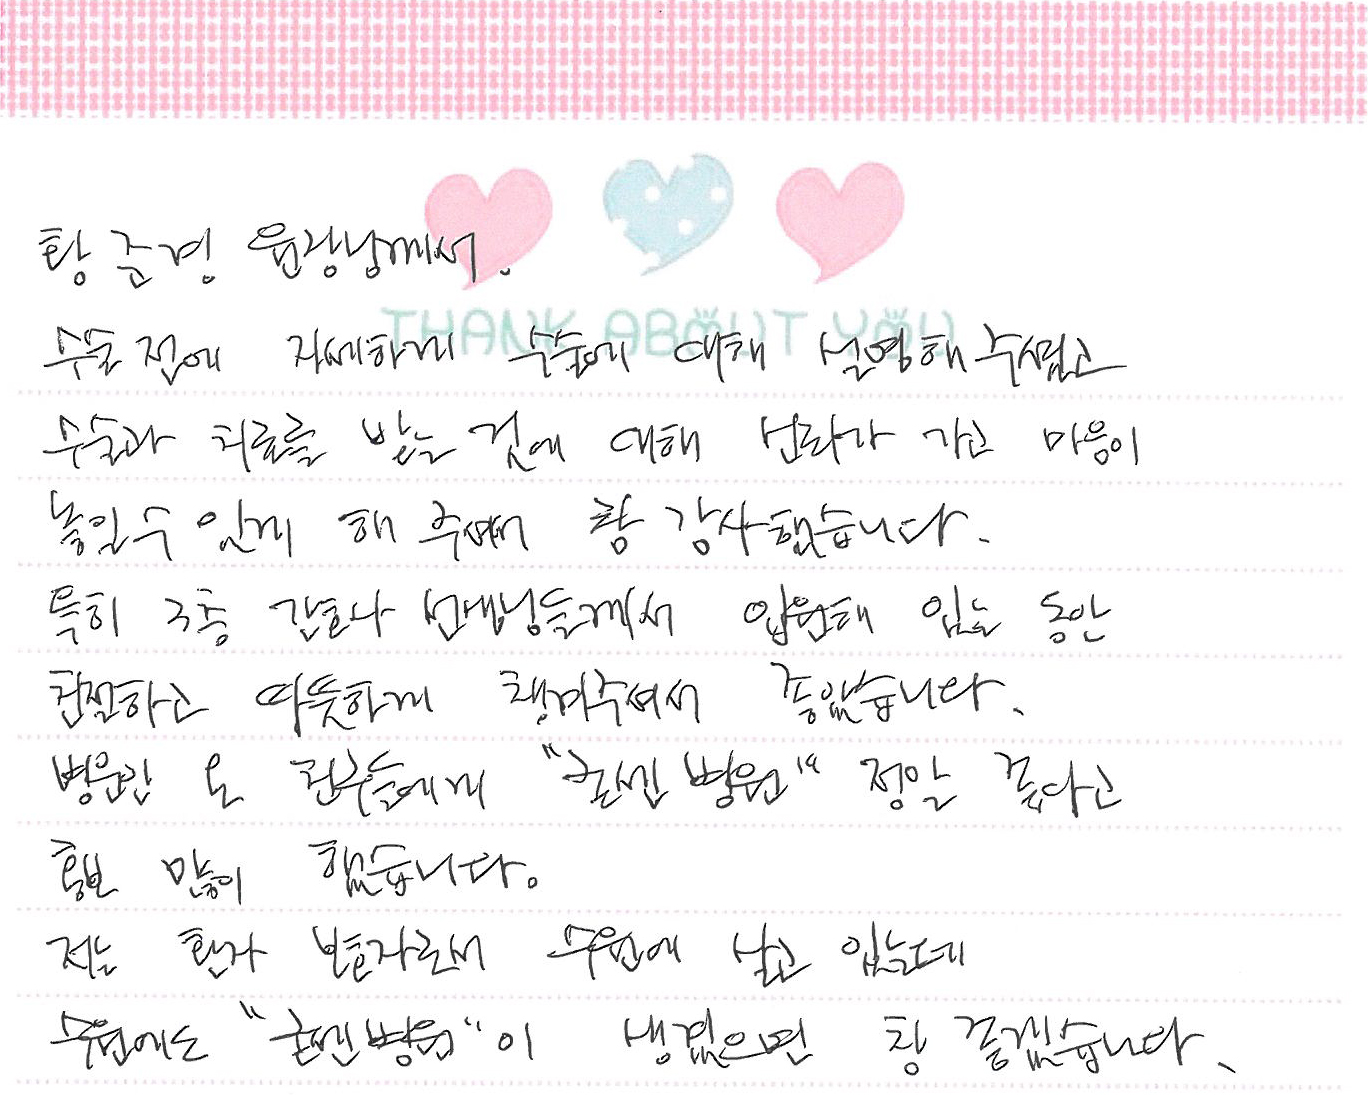 황준경 원장님께서.
THANK ABOUT YOU
수술전에 자세하게 수술에 대해 설명해 주셨고
수술과 치료를 받는 것에 대해 신뢰가 가고 마음이
놓일수 있게 해 주셔서 참 감사했습니다.
특히 3층 간호사 선생님들께서 입원해 있는 동안
친절하고 따뜻하게 챙겨주셔서 좋았습니다.
병문안 온 친구들에게 "굿센병원" 정말 좋다고
홍보 많이 했습니다.
저는 환자 보호자로서 수원에 살고 있는데
수원에도 "굿센병원"이 생겼으면 참 좋겠습니다.